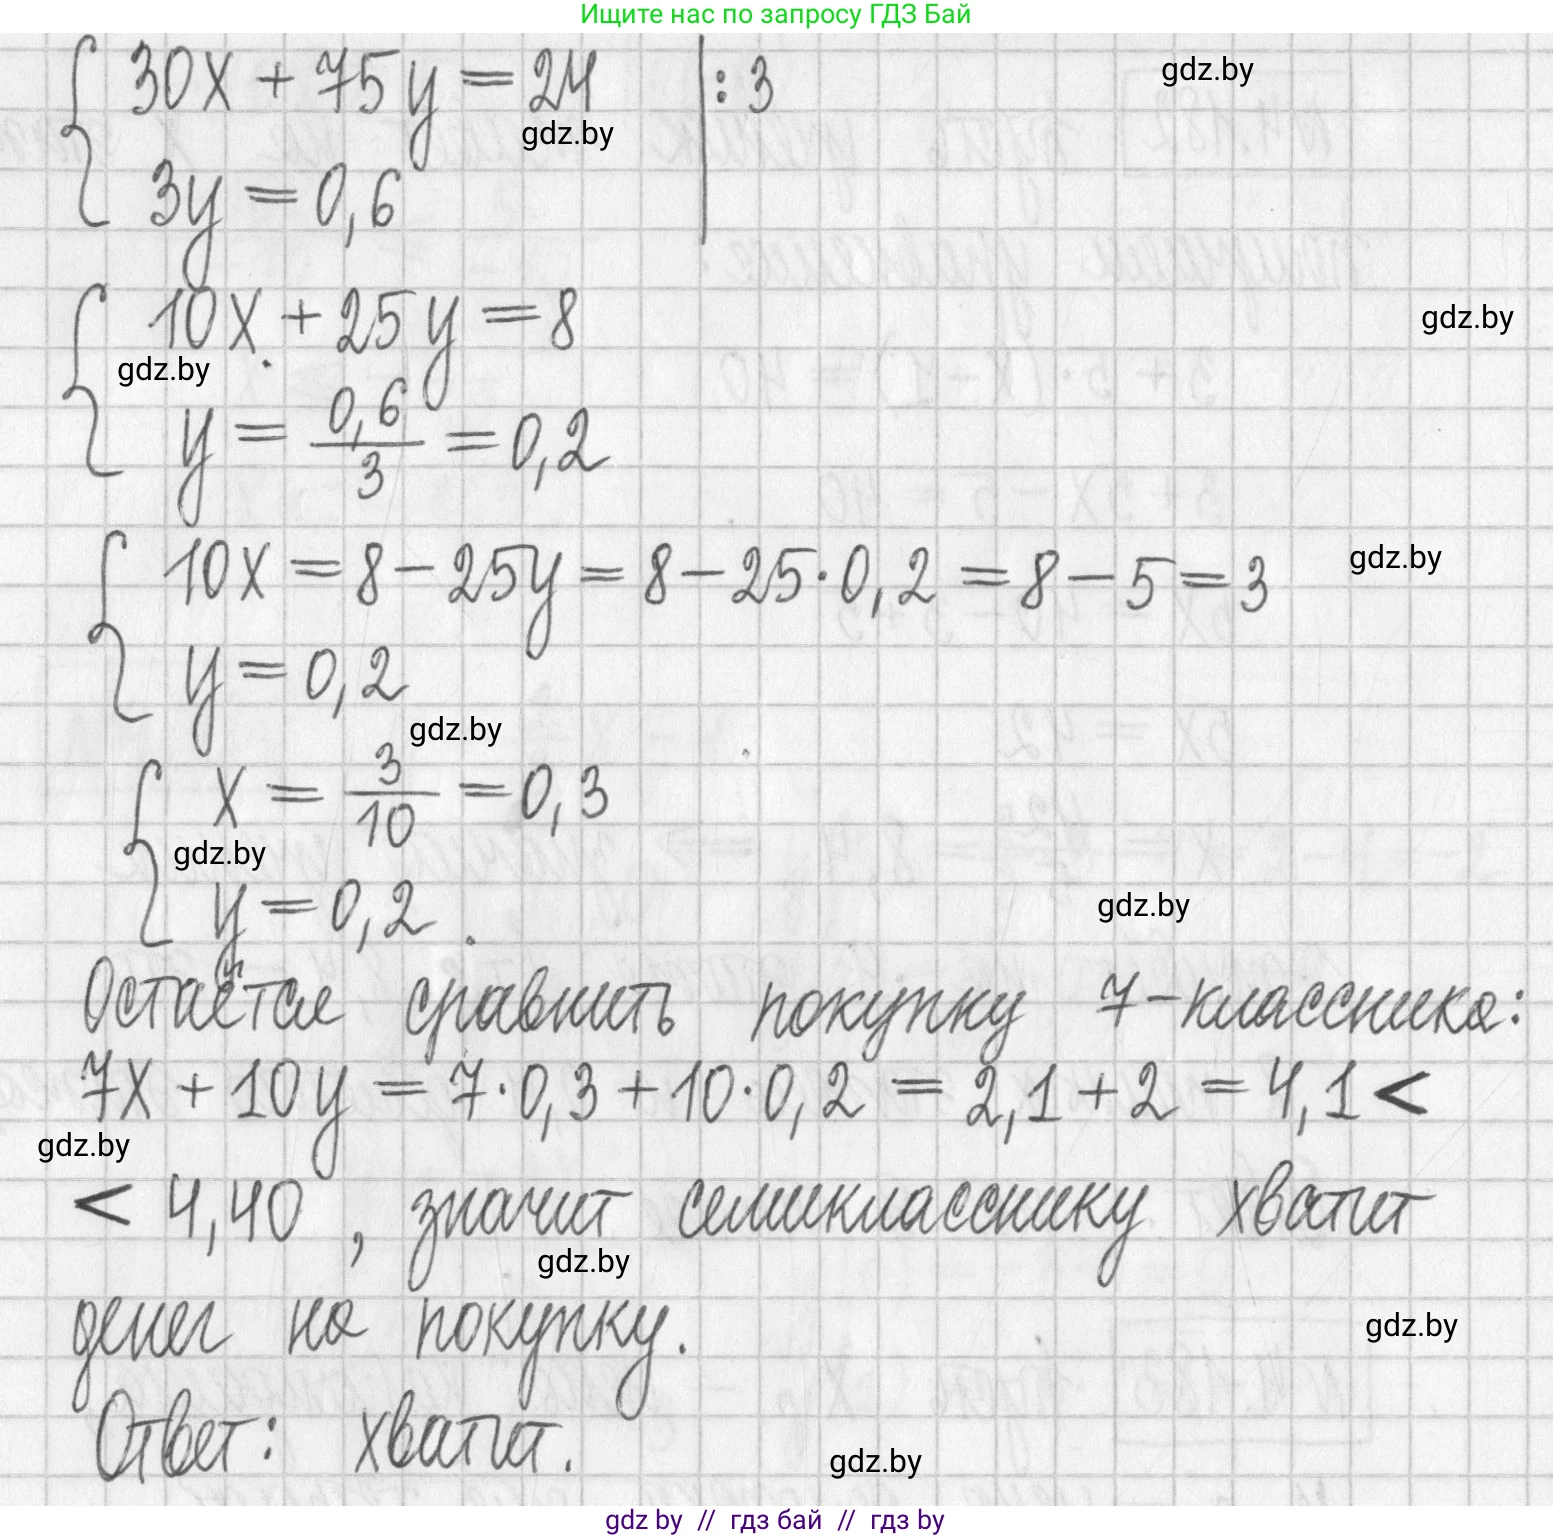 Ищите нас по запросу ГДЗ Бай
30x + 75y = 24 | : 3
gdz.by
gdz.by
3y = 0,6
10x + 25y = 8
gdz.by
gdz.by
y = 0,6/3 = 0,2
10x = 8 - 25y = 8 - 25·0,2 = 8 - 5 = 3
gdz.by
y = 0,2
gdz.by
x = 3/10 = 0,3
gdz.by
y = 0,2.
gdz.by
Остаётся сравнить покупку 7-классника:
7x + 10y = 7·0,3 + 10·0,2 = 2,1 + 2 = 4,1 <
gdz.by
< 4,40, значит семикласснику хватит
gdz.by
денег на покупку.
gdz.by
Ответ: хватит.
gdz.by
gdz by // гдз бай // гдз by